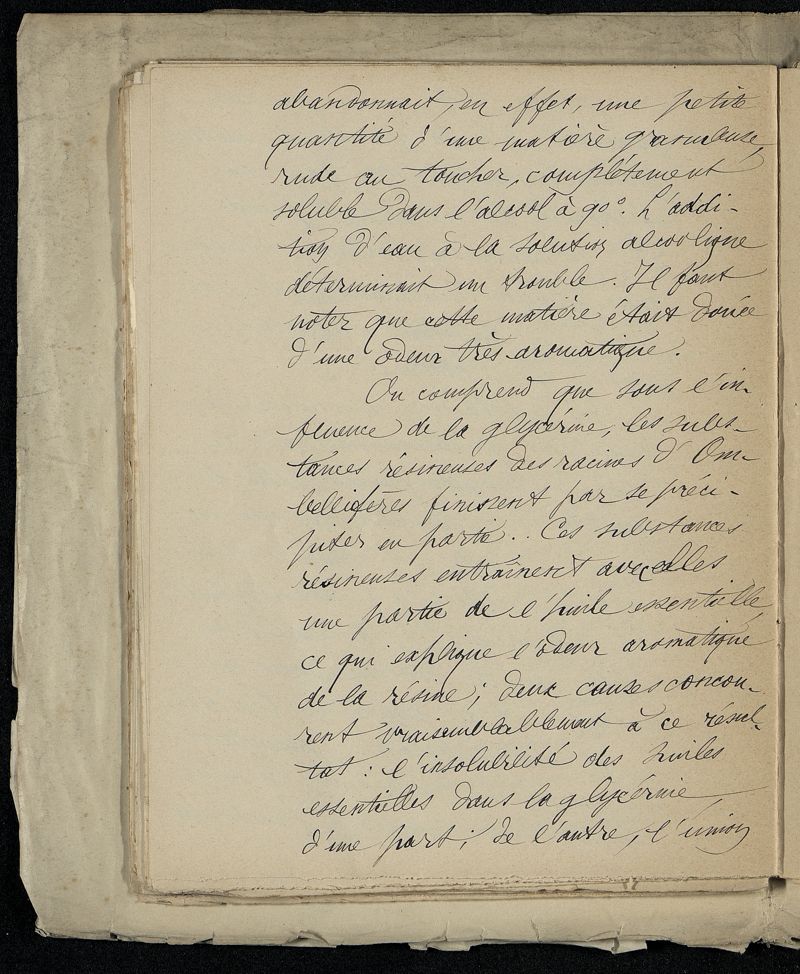 abandonnait, en effet, une petite
quantité d'une matière grumeleuse,
rude au toucher, complètement
soluble dans l'alcool à 90°. L'addi-
tion d'eau à la solution alcoolique
déterminait un trouble. Il faut
noter que cette matière était douée
d'une odeur très aromatique.
On comprend que sous l'in-
fluence de la glycérine, les subs-
tances résineuses des racines d'Om-
bellifères finissent par se préci-
piter en partie.. Ces substances
résineuses entraînent avec elles
une partie de l'huile essentielle,
ce qui explique l'odeur aromatique
de la résine; deux causes concou-
rent vraisemblablement à ce résul-
tat: l'insolubilité des huiles
essentielles dans la glycérine
d'une part; de l'autre, l'union